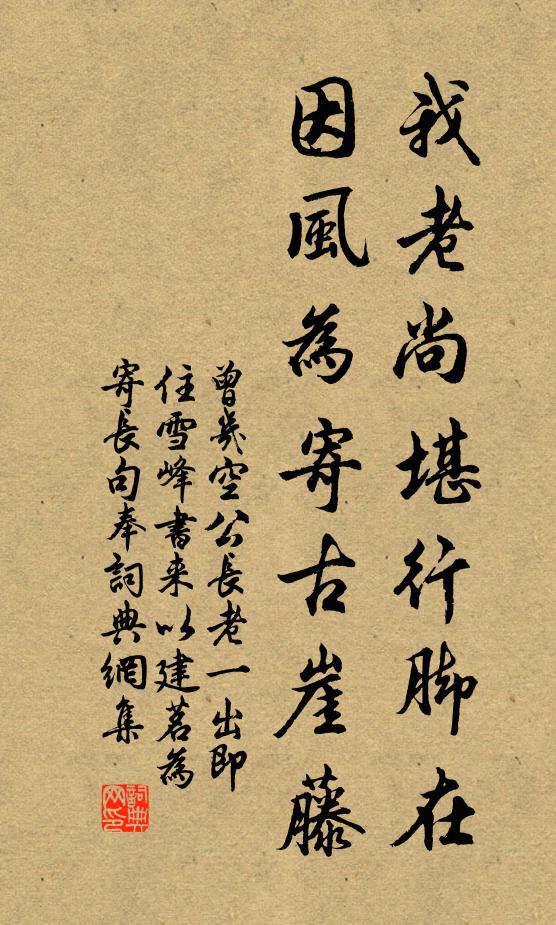 我老尚堪行脚在
因風為寄古崖藤
曾幾空公長老一出即
住雪峰書来以建茗為
寄長句奉詞典網集
詞典網印